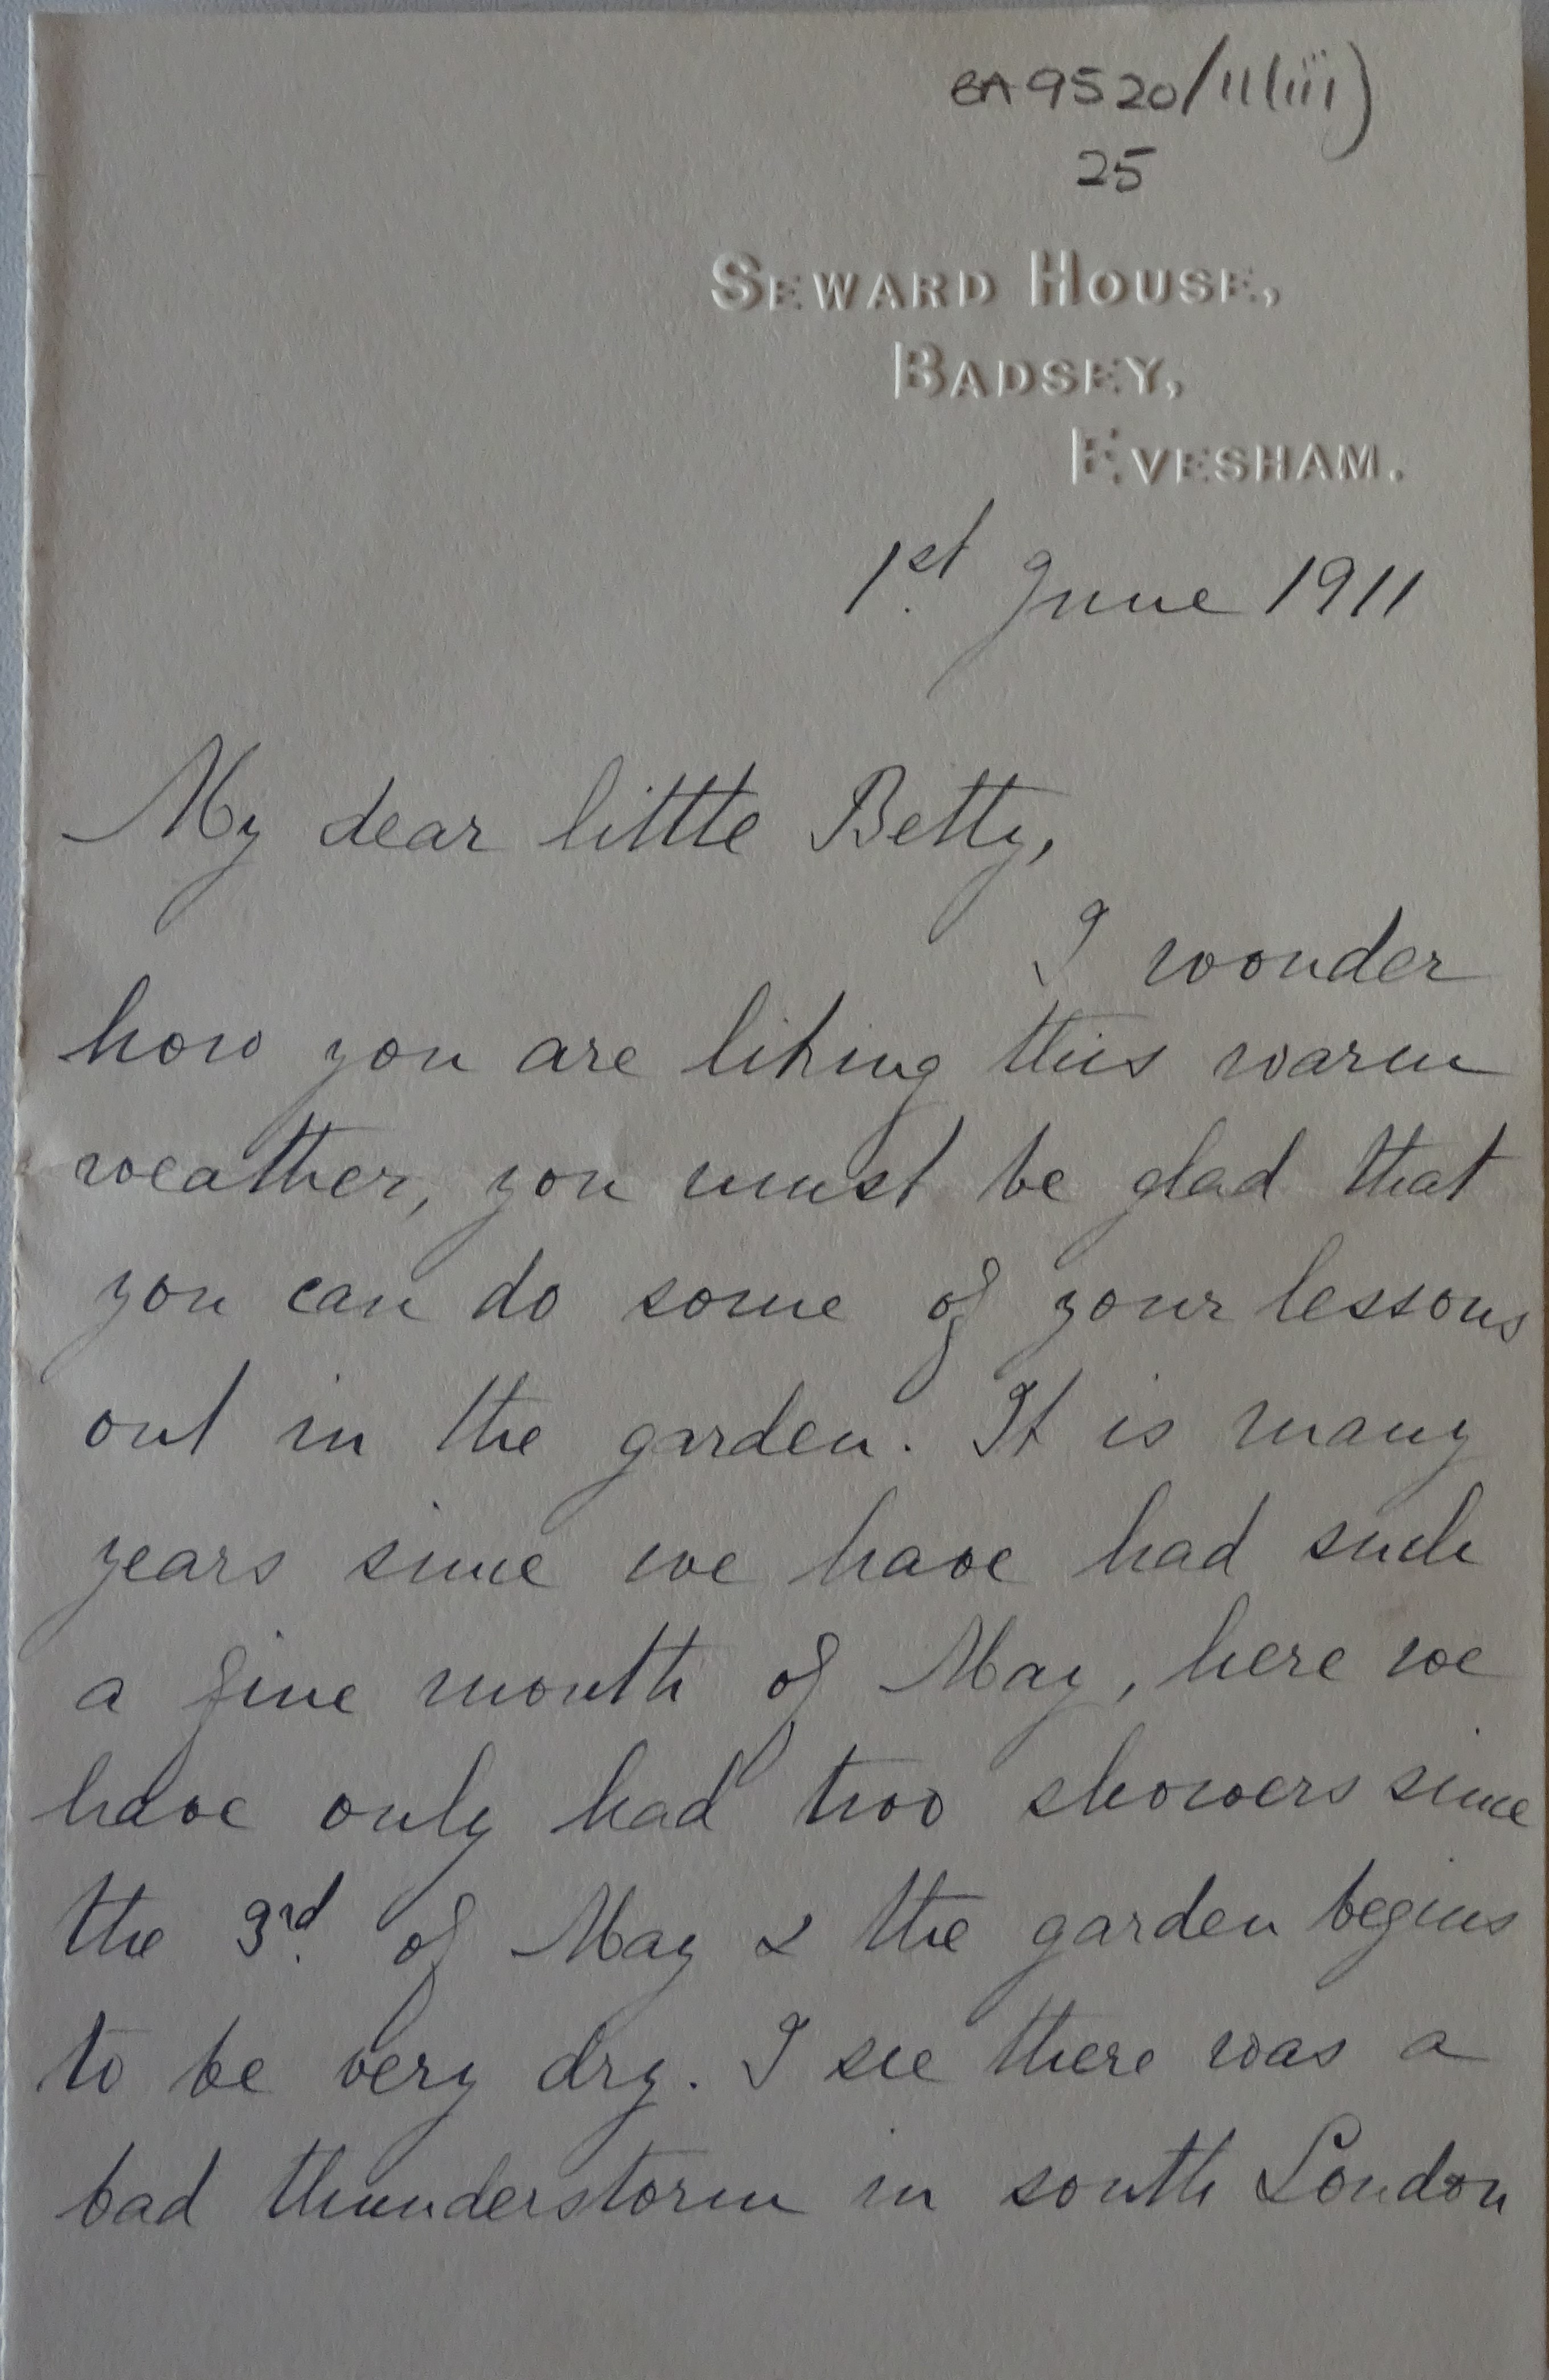 BA 9520/11(iii)
25
SEWARD HOUSE,
BADSEY,
EVESHAM.
1st June 1911
My dear little Betty,
I wonder
how you are liking this warm
weather, you must be glad that
you can do some of your lessons
out in the garden. It is many
years since we have had such
a fine month of May, here we
have only had two showers since
the 3rd of May & the garden begins
to be very dry. I see there was a
bad thunderstorm in south London